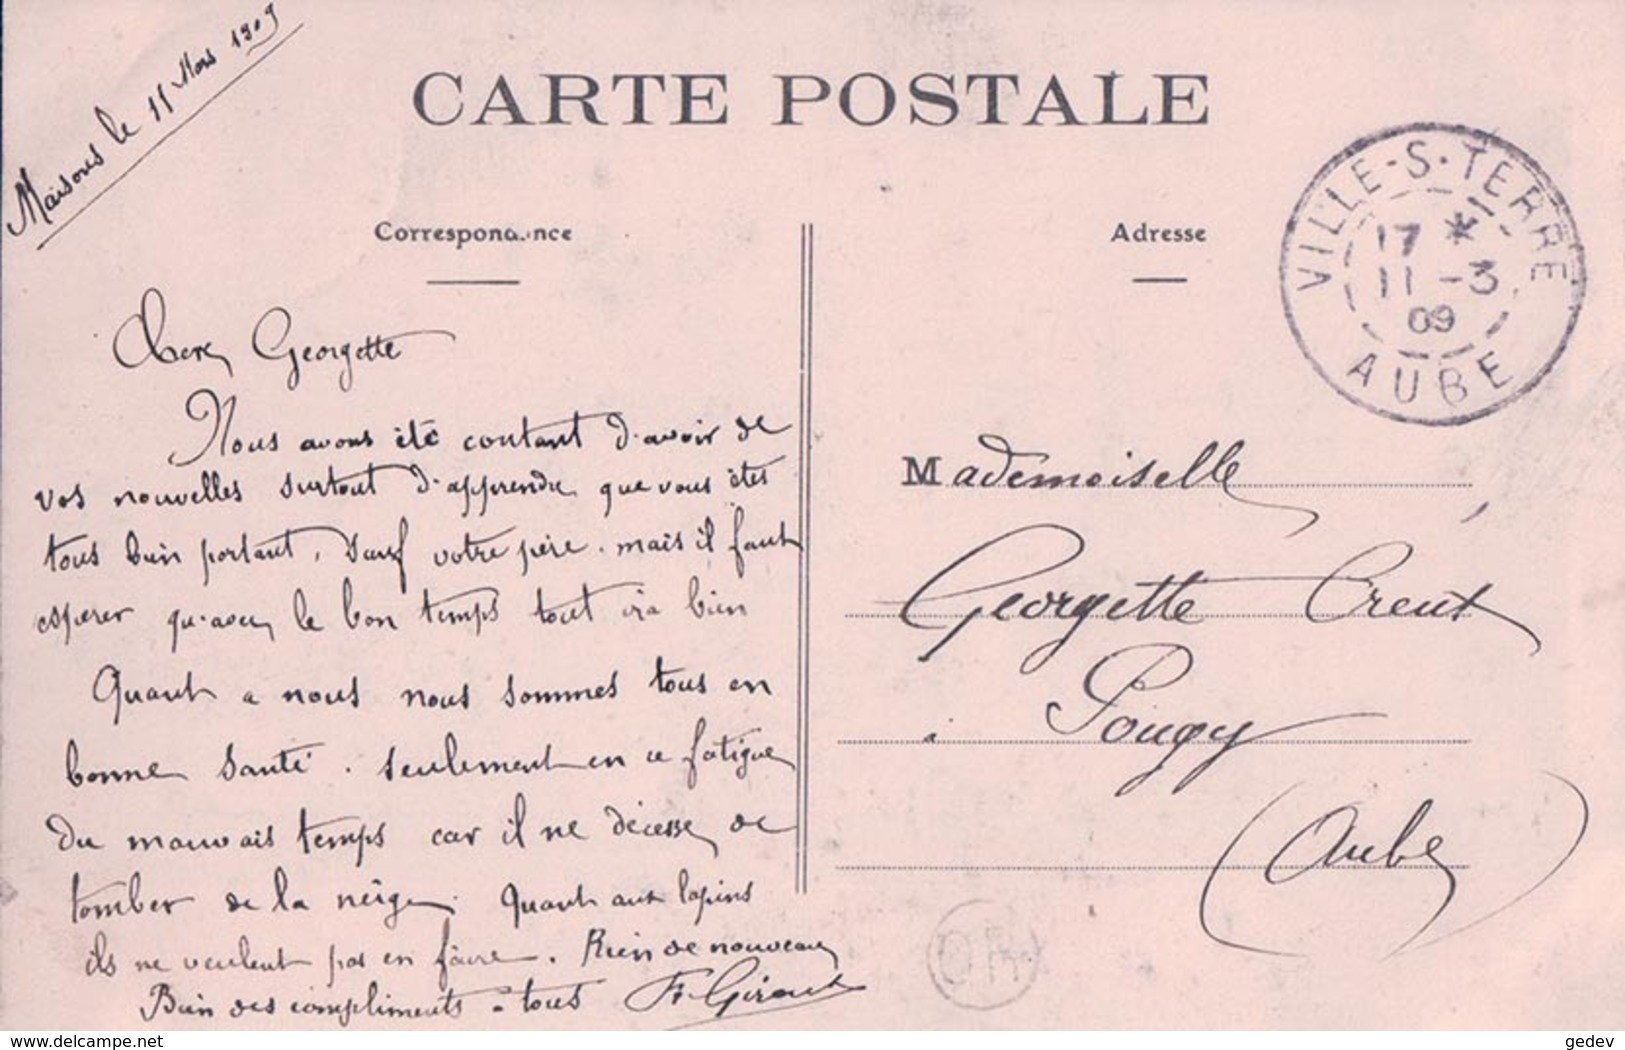 Maisons le 11 Mars 1909
CARTE POSTALE
Correspondance
Adresse
VILLE-S-TERRE
17 *
11 -3
09
AUBE
Chere Georgette
Nous avons été contant d'avoir de
vos nouvelles surtout d'apprendre que vous êtes
tous bien portant, sauf votre père. mais il faut
esperer qu'avec le bon temps tout ira bien
Quant a nous nous sommes tous en
bonne santé. seulement on ce fatigue
du mauvais temps car il ne décesse de
tomber de la neige. Quant aux lapins
ils ne veulent pas en faire. Rien de nouveau
Bien des compliments a tous Ft Giraut
Mademoiselle
Georgette Creux
à Pougy
(Aube)
OR
www.delcampe.net
gedev